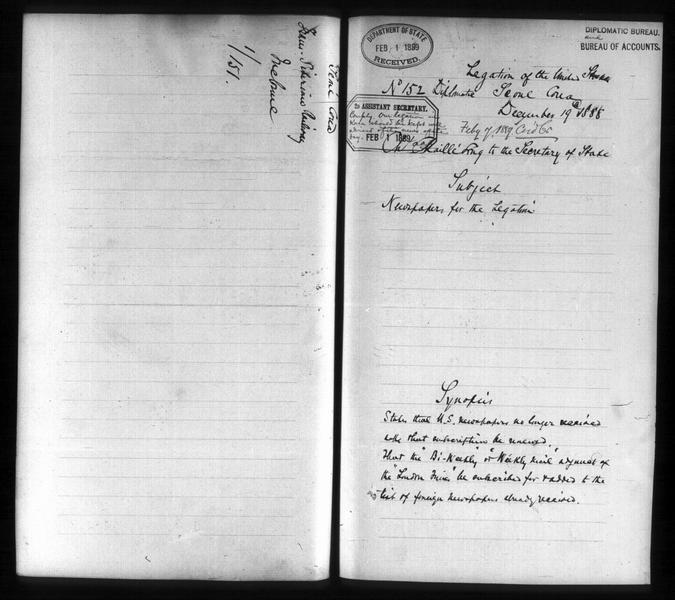 Trans-Siberian Railway
Inclosure
1/
1/151.
DEPARTMENT OF STATE
FEB 1 1889
RECEIVED.
DIPLOMATIC BUREAU.
and
BUREAU OF ACCOUNTS.
Legation of the United States
No 152 Diplomatic Seoul Corea
December 19th 1888
2D ASSISTANT SECRETARY.
FEB 1 1889
Feby 7, 1889
Chaillé Long to the Secretary of State
Subject
Newspapers for the Legation
Synopsis
States that U.S. newspapers no longer received
asks that subscription be renewed.
That the "Bi-Weekly" or "Weekly mail" adjunct of
the "London Times" be subscribed for & added to the
list of foreign newspapers already received.